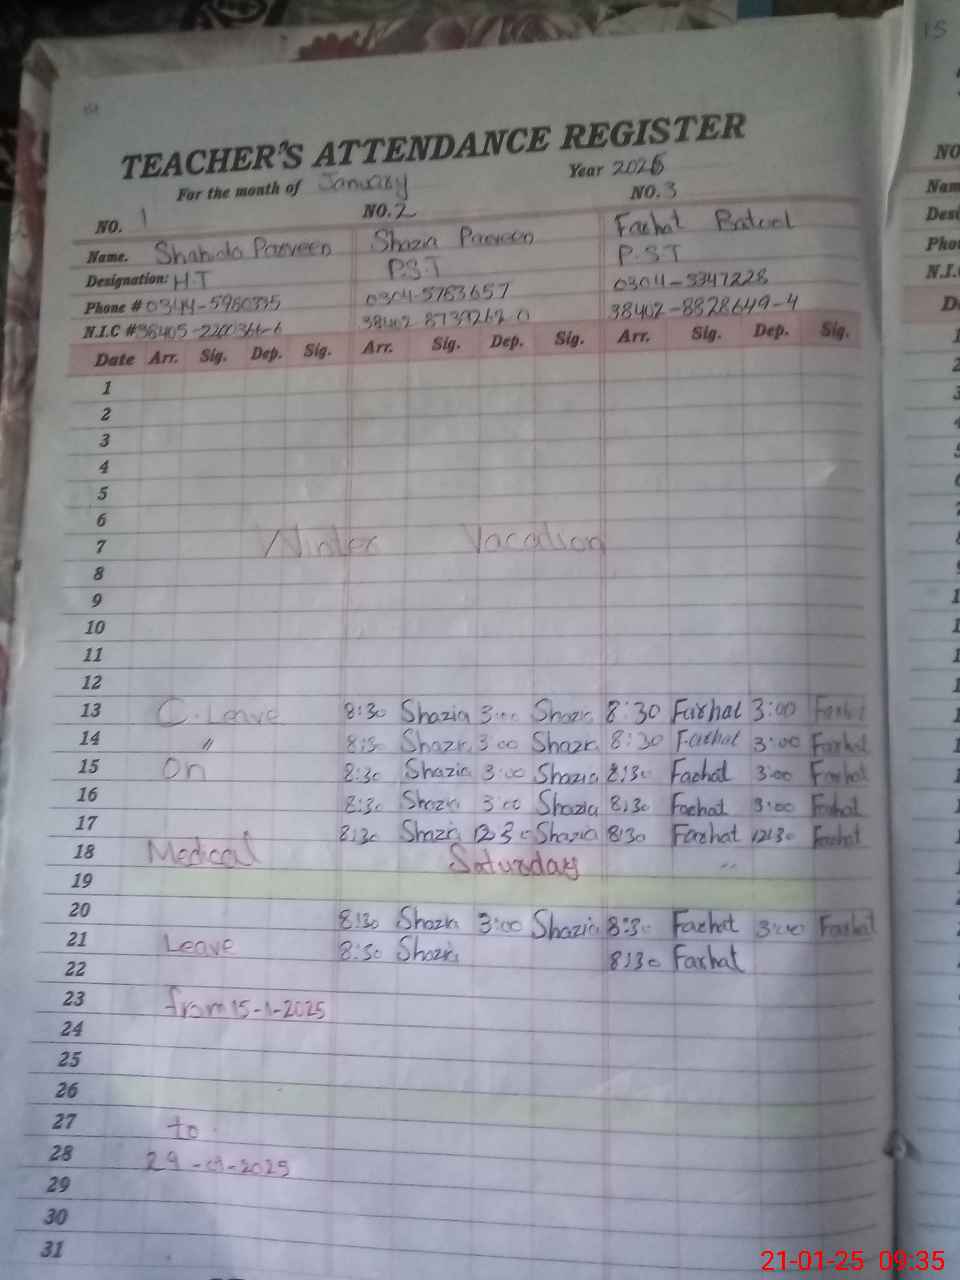 TEACHER'S ATTENDANCE REGISTER
For the month of January Year 2025
NO. 1 NO. 2 NO. 3
Name. Shahida Parveen Shazia Parveen Farhat Batool
Designation: H.T P.S.T P.S.T
Phone # 0344-5980335 0304-5783657 0304-3347228
N.I.C # 38405-2200366-6 38402 8739262 0 38402-8828649-4
Date Arr. Sig. Dep. Sig. Arr. Sig. Dep. Sig. Arr. Sig. Dep. Sig.
1
2
3
4
5
6
7 Winter Vacation
8
9
10
11
12
13 C. Leave 8:30 Shazia 3:00 Shazia 8:30 Farhat 3:00 Farhat
14 〃 8:30 Shazia 3:00 Shazia 8:30 Farhat 3:00 Farhat
15 On 8:30 Shazia 3:00 Shazia 8:30 Farhat 3:00 Farhat
16 8:30 Shazia 3:00 Shazia 8:30 Farhat 3:00 Farhat
17 8:30 Shazia 12:30 Shazia 8:30 Farhat 12:30 Farhat
18 Medical Saturday
19
20 8:30 Shazia 3:00 Shazia 8:30 Farhat 3:00 Farhat
21 Leave 8:30 Shazia 8:30 Farhat
22
23 from 15-1-2025
24
25
26
27 to
28 29-01-2025
29
30
31
15
NO
21-01-25 09:35